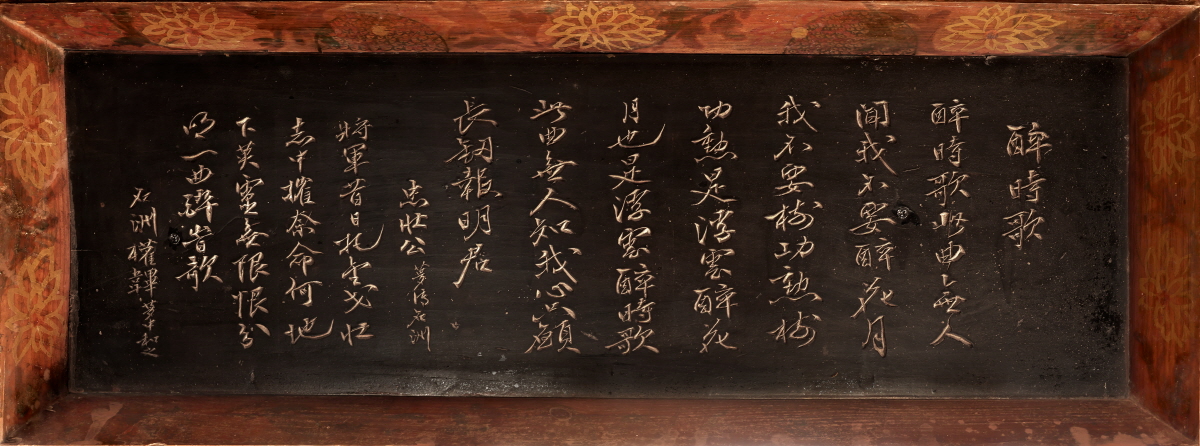 醉時歌
醉時歌此曲無人
聞我不要醉花月
我不要樹功勳樹
功勳是浮雲醉花
月也是浮雲醉時歌
此曲無人知我心只願
長劒報明君
忠壯公 夢傳石洲
將軍昔日把金戈壯
志中摧奈命何地
下英靈無限恨分
明一曲醉時歌
石洲權韠夢中和之